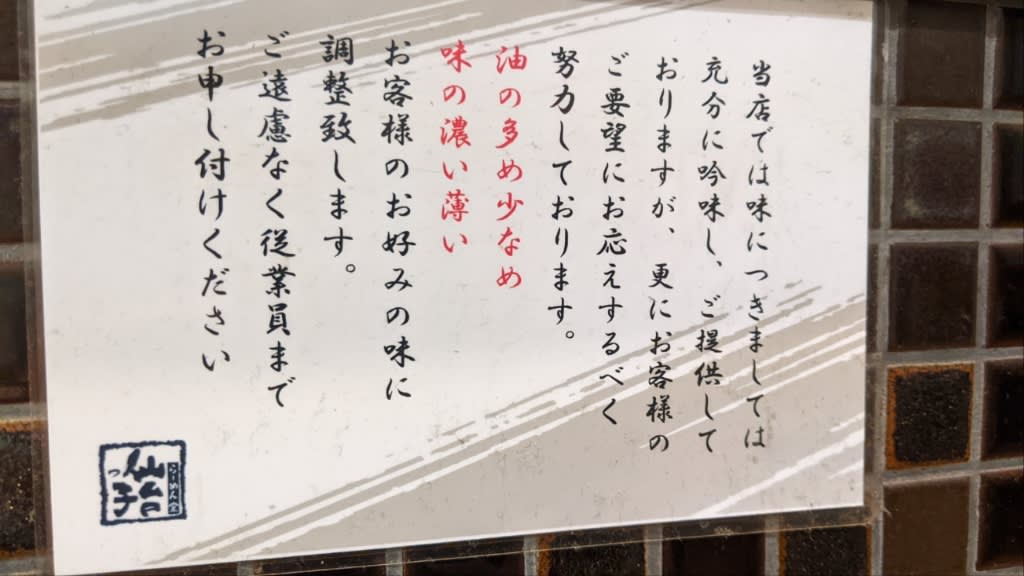 当店では味につきましては
充分に吟味し、ご提供して
おりますが、更にお客様の
ご要望にお応えするべく
努力しております。
油の多め少なめ
味の濃い薄い
お客様のお好みの味に
調整致します。
ご遠慮なく従業員まで
お申し付けください
らーめん堂
仙台
っ子